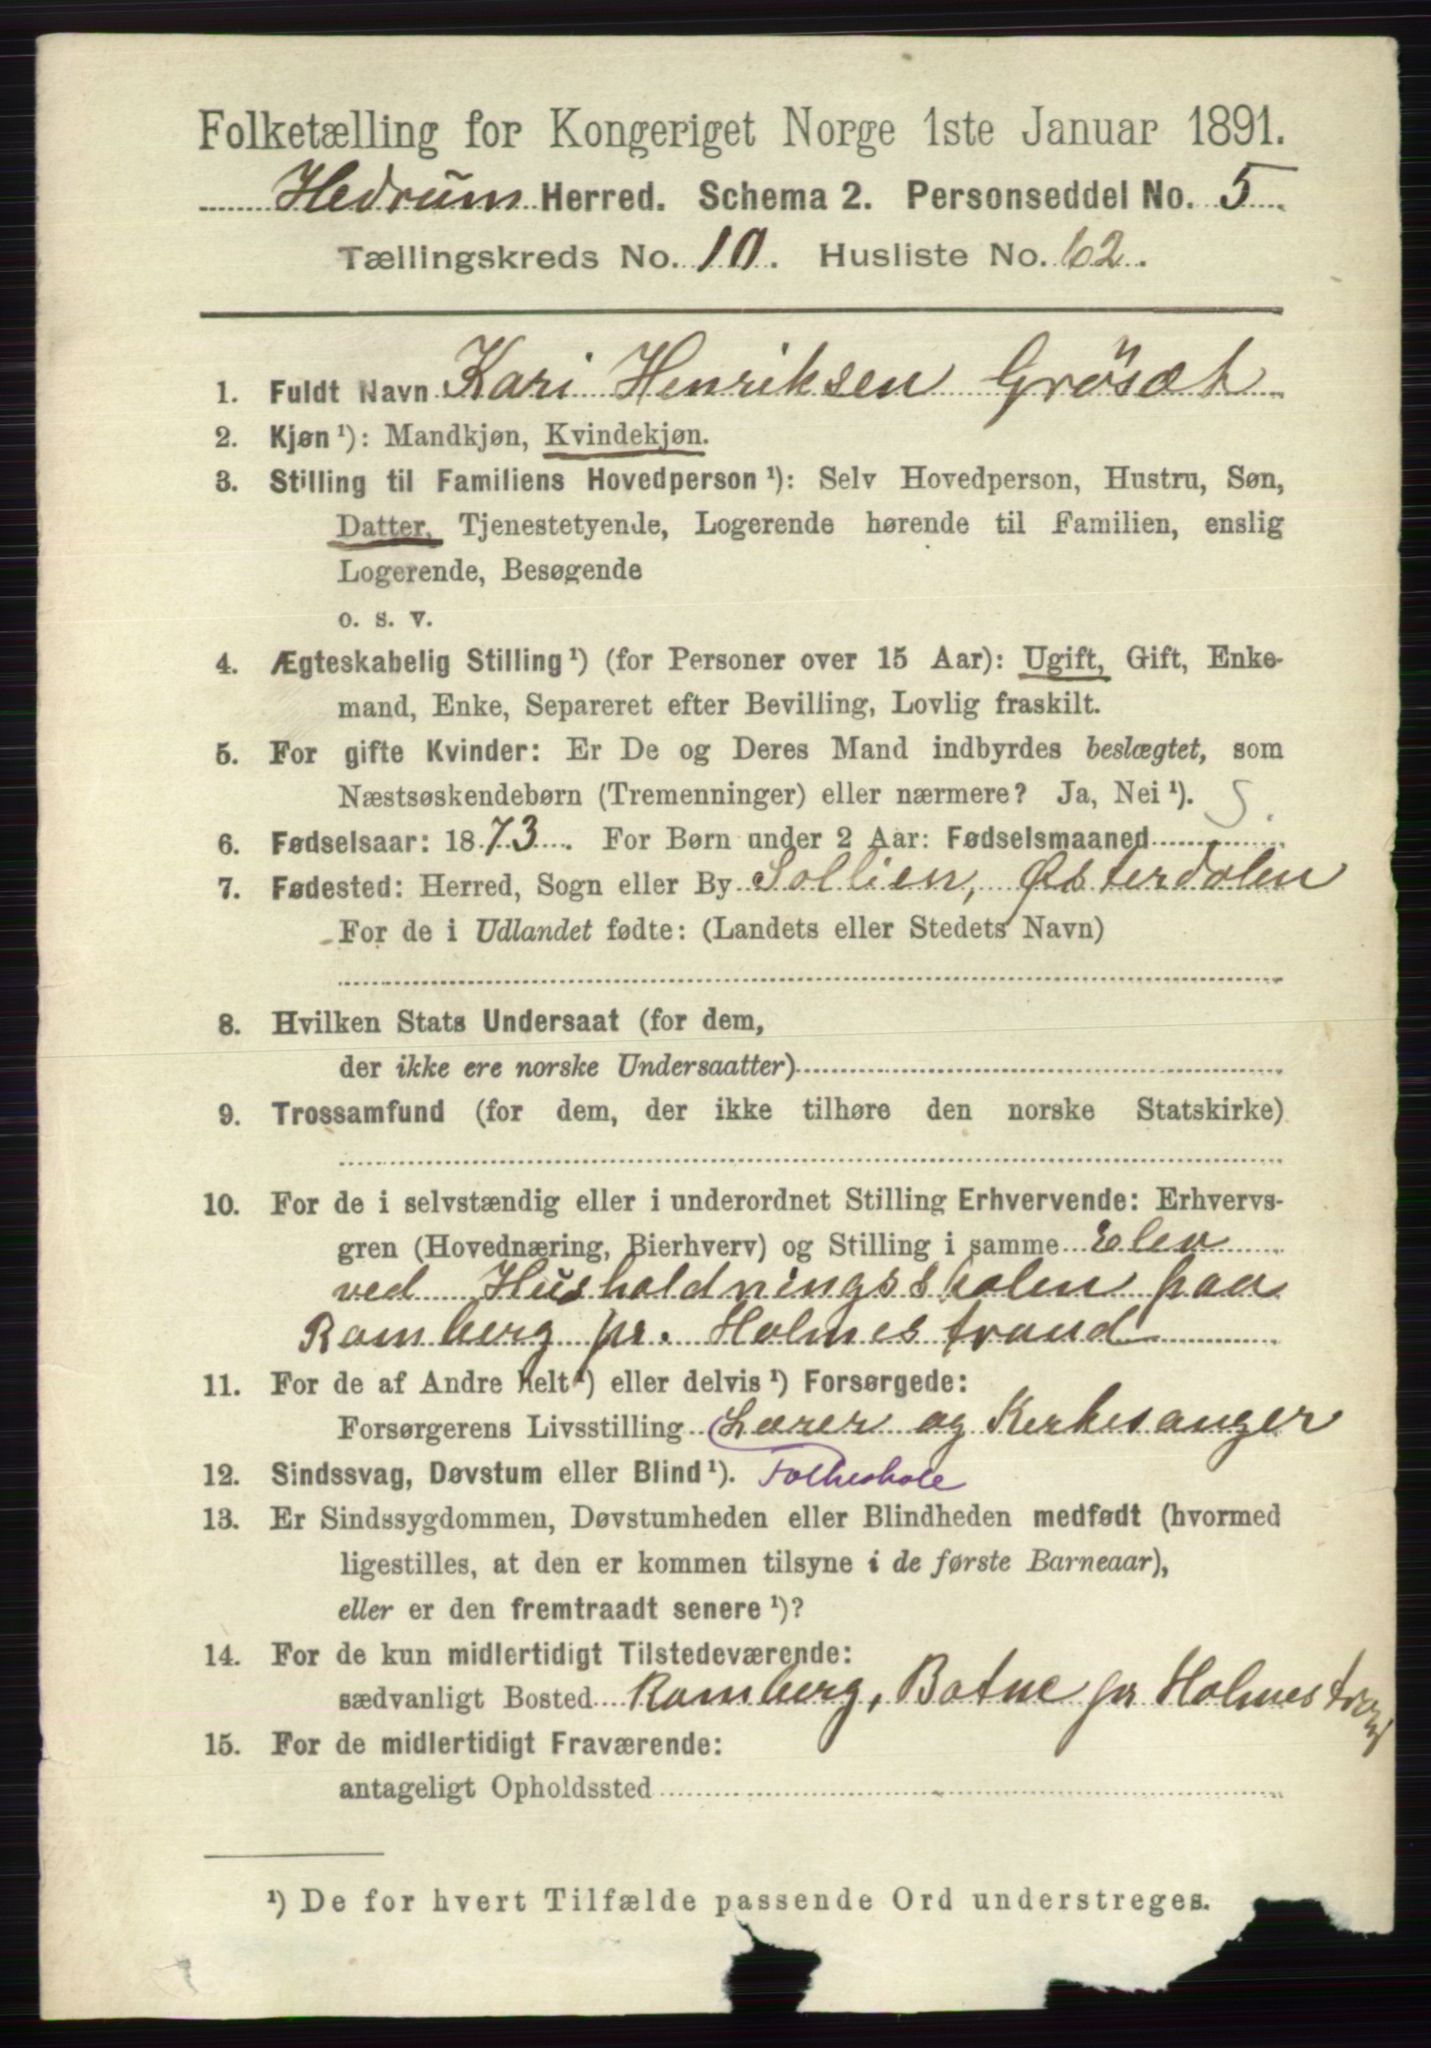 Folketælling for Kongeriget Norge 1ste Januar 1891.
Hedrum Herred. Schema 2. Personseddel No. 5
Tællingskreds No. 10. Husliste No. 62.
1. Fuldt Navn Kari Henriksen Grösæt
2. Kjøn¹): Mandkjøn, Kvindekjøn.
3. Stilling til Familiens Hovedperson¹): Selv Hovedperson, Hustru, Søn,
Datter, Tjenestetyende, Logerende hørende til Familien, enslig
Logerende, Besøgende
o. s. v.
4. Ægteskabelig Stilling¹) (for Personer over 15 Aar): Ugift, Gift, Enke-
mand, Enke, Separeret efter Bevilling, Lovlig fraskilt.
5. For gifte Kvinder: Er De og Deres Mand indbyrdes beslægtet, som
Næstsøskendebørn (Tremenninger) eller nærmere? Ja, Nei¹).
6. Fødselsaar: 1873. For Børn under 2 Aar: Fødselsmaaned
7. Fødested: Herred, Sogn eller By Sollien, Østerdalen
For de i Udlandet fødte: (Landets eller Stedets Navn)
8. Hvilken Stats Undersaat (for dem,
der ikke ere norske Undersaatter)
9. Trossamfund (for dem, der ikke tilhøre den norske Statskirke)
10. For de i selvstændig eller i underordnet Stilling Erhvervende: Erhvervs-
gren (Hovednæring, Bierhverv) og Stilling i samme Elev
ved Husholdningsskolen paa
Ramberg pr. Holmestrand
11. For de af Andre helt¹) eller delvis¹) Forsørgede:
Forsørgerens Livsstilling Lærer og Kirkesanger
12. Sindssvag, Døvstum eller Blind¹). Folkeskole
13. Er Sindssygdommen, Døvstumheden eller Blindheden medfødt (hvormed
ligestilles, at den er kommen tilsyne i de første Barneaar),
eller er den fremtraadt senere¹)?
14. For de kun midlertidigt Tilstedeværende:
sædvanligt Bosted Ramberg, Botne pr Holmestrand
15. For de midlertidigt Fraværende:
antageligt Opholdssted
¹) De for hvert Tilfælde passende Ord understreges.